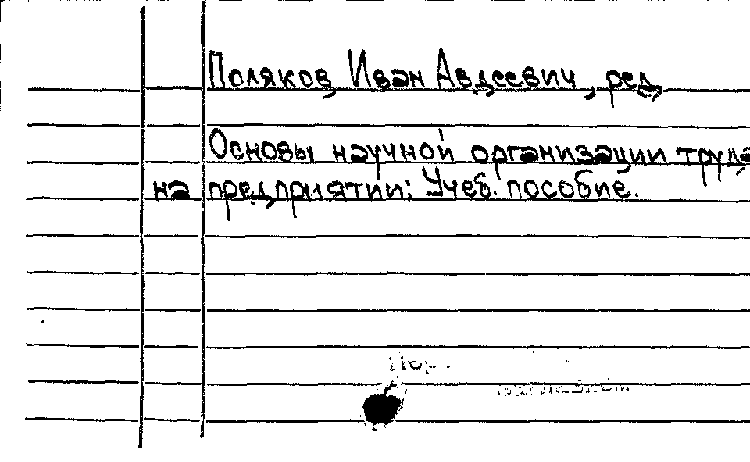 Поляков, Иван Авдеевич, ред.
Основы научной организации труда
на предприятии: Учеб. пособие.